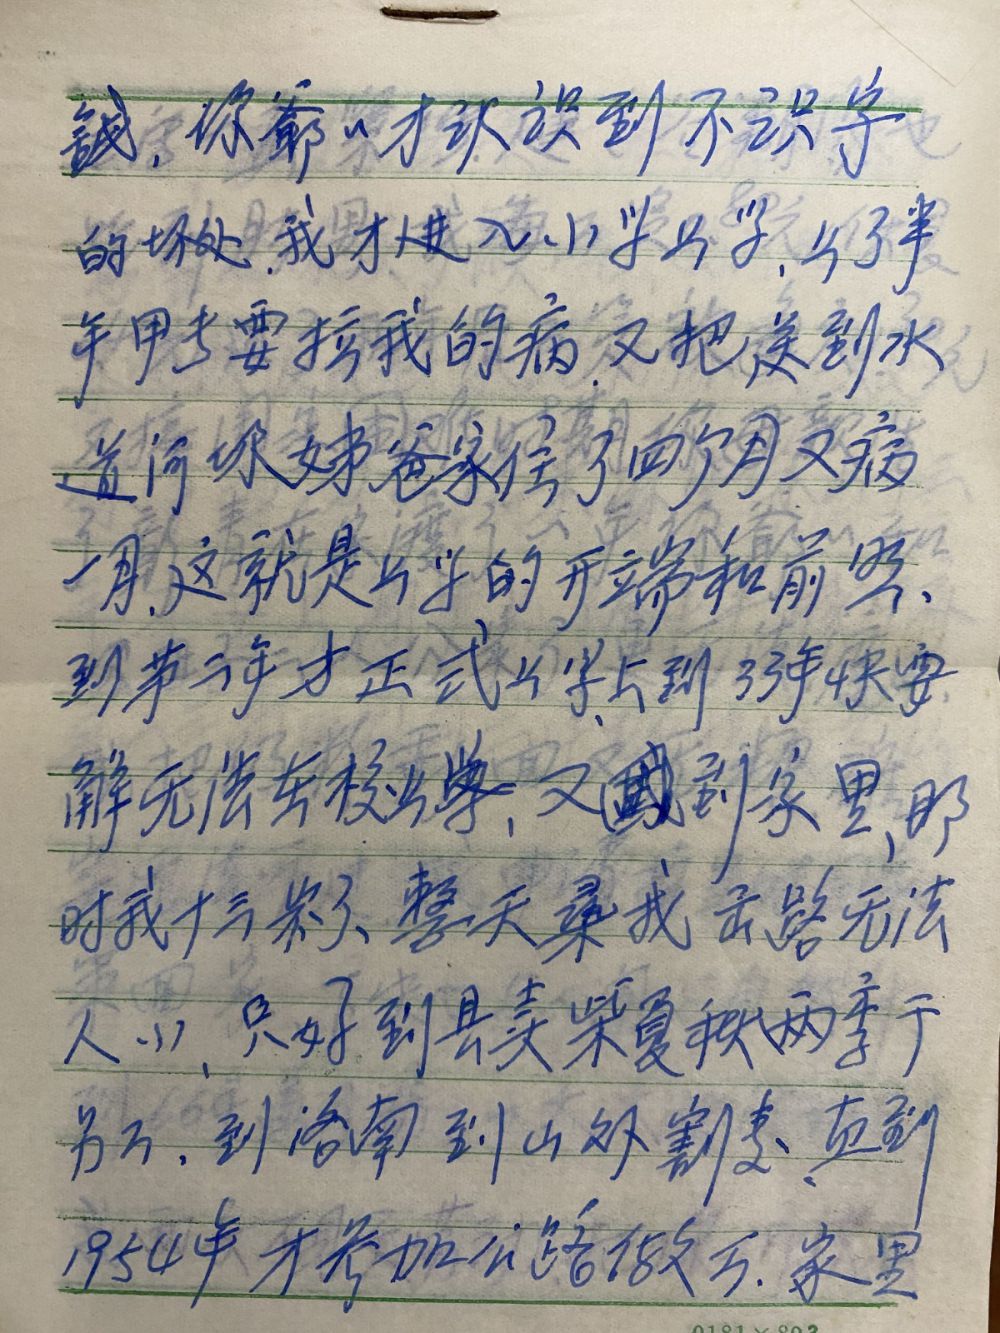 你爷〃才认误到不识字
的坏处、我才入进小学上学、上了半
年甲长要拉我的病、又把送到水
道河坏姊爸家住了四个月又病
一月、这就是上学的开端和前、
到第二年才正式上学、上到33年快要
解无法在校上学、又到家里、那
时我十三岁了、整天寻我去路无法
人小、只好到县卖柴夏秋两季于
另工、到洛南到山外割麦、直到
1954年才参加公路做工、家里
0181×803